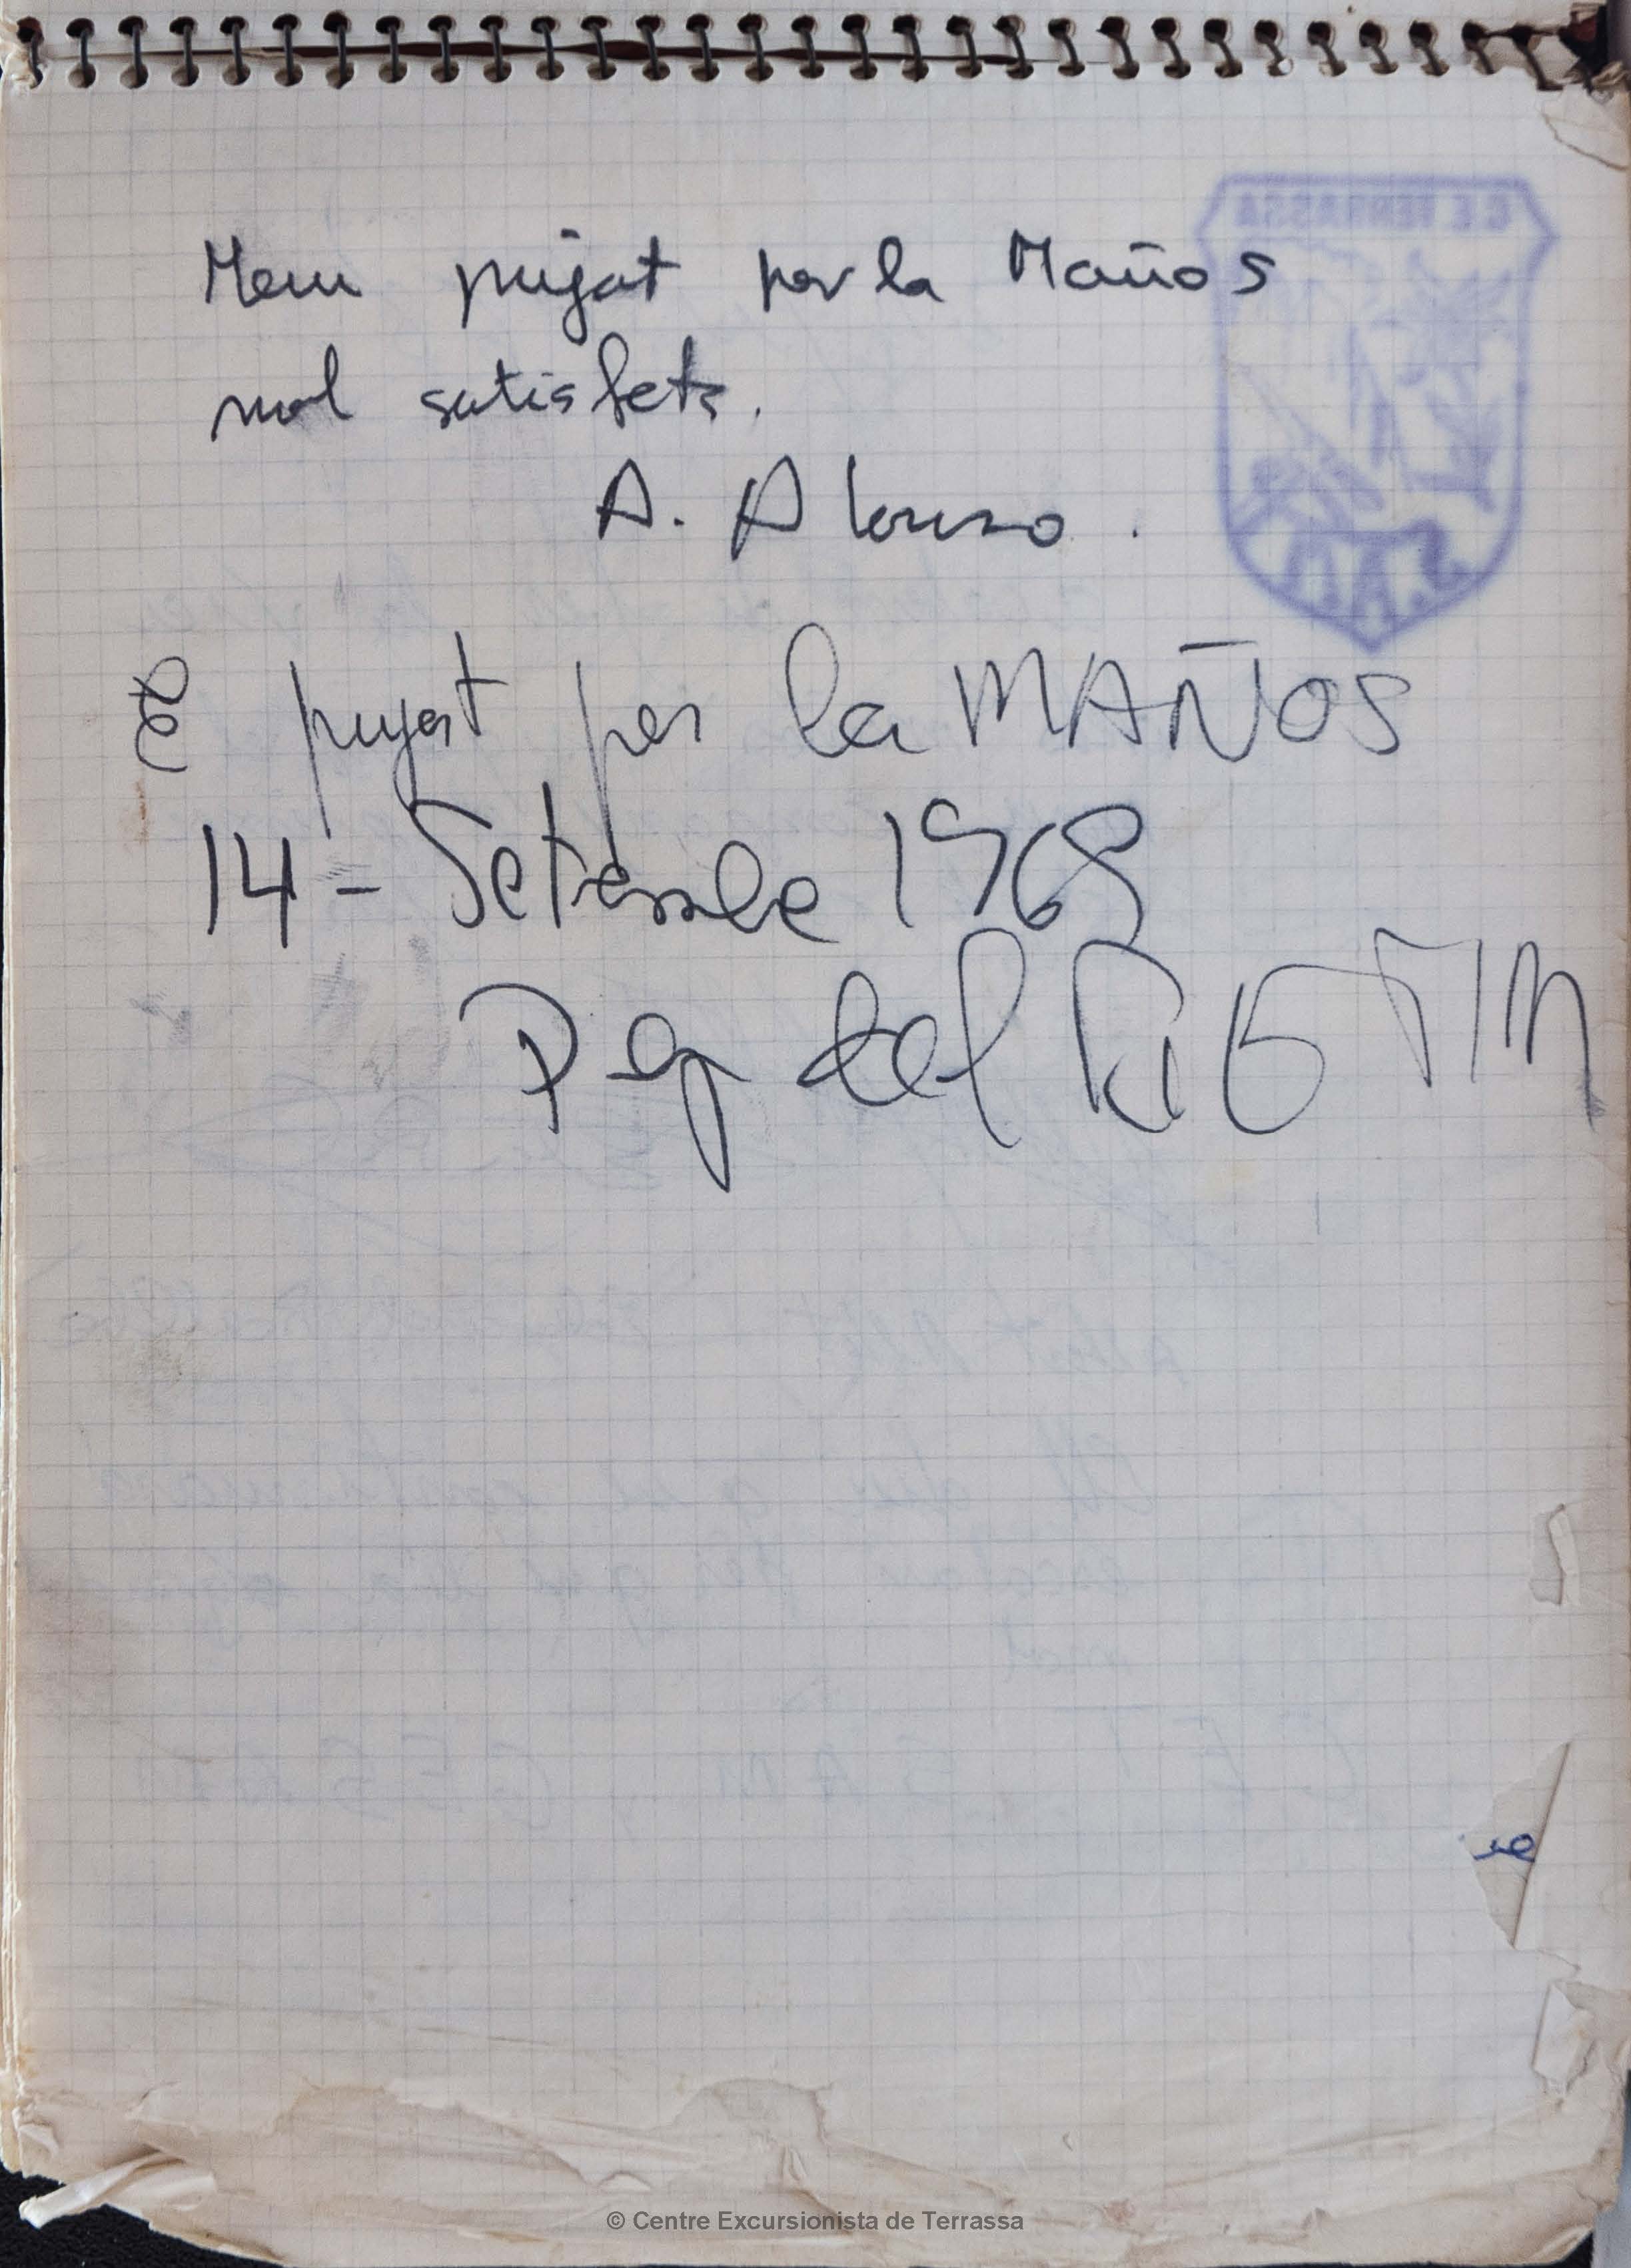 Hem pujat per la Maños
mol satisfets.
A. Alonso.
E pujat per la MAÑOS
14 - Setembre 1969
Pep del
© Centre Excursionista de Terrassa